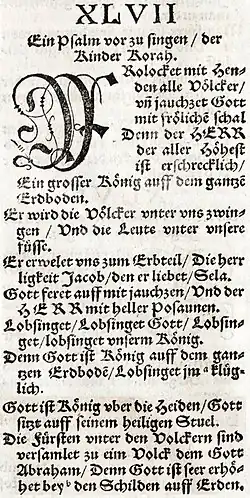 XLVII
Ein Psalm vor zu singen / der
Kinder Korah.
FRolocket mit Hen-
den alle Völcker /
vñ jauchzet Gott
mit frölichẽ schal
Denn der HERR
der aller Höhest
ist erschrecklich /
Ein grosser König auff dem gantzẽ
Erdboden.
Er wird die Völcker vnter vns zwin-
gen / Vnd die Leute vnter vnsere
füsse.
Er erwelet vns zum Erbteil / Die herr
ligkeit Jacob / den er liebet / Sela.
Gott feret auff mit jauchzen / Vnd der
HERR mit heller Posaunen.
Lobsinget / Lobsinget Gott / Lobsin-
get / lobsinget vnserm König.
Denn Gott ist König auff dem gan-
tzen Erdbodẽ / Lobsinget jm a klüg-
lich.
Gott ist König vber die Heiden / Gott
sitzt auff seinem heiligen Stuel.
Die Fürsten vnter den Volckern sind
versamlet zu eim Volck dem Gott
Abraham / Denn Gott ist seer erhö-
het bey b den Schilden auff Erden.